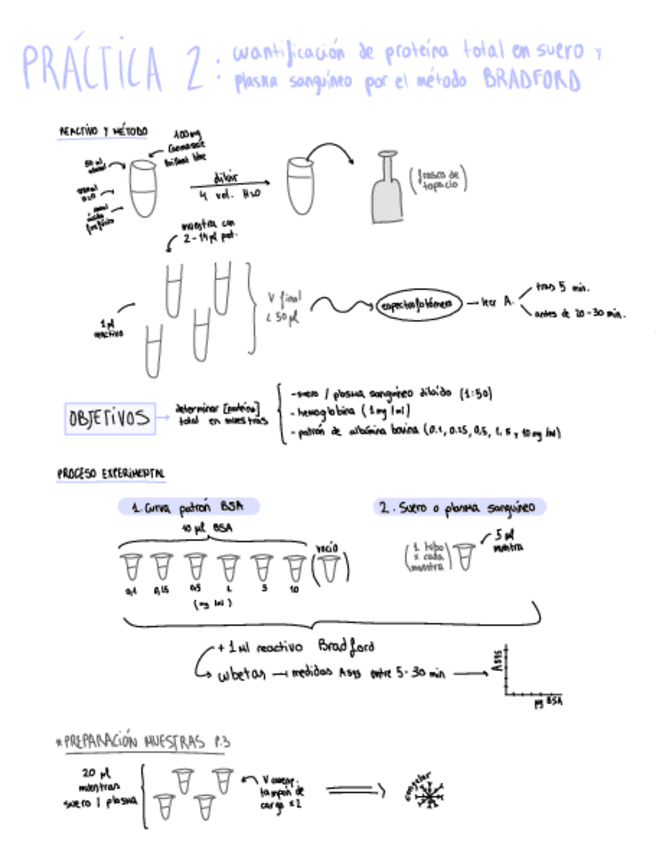 PRÁCTICA 2: cuantificación de proteína total en suero y
plasma sanguíneo por el método BRADFORD
REACTIVO Y MÉTODO
100mg
Coomassie
brillant blue
diluir
4 vol. H2O
(frasco de
topacio)
muestra con
2-14 µl prot.
V final
< 50 µl
espectrofotómero
leer A.
tras 5 min.
antes de 20-30 min.
reactivo
OBJETIVOS
determinar [proteína]
total en muestras
-suero / plasma sanguíneo diluido (1:50)
-hemoglobina (1mg/ml)
-patrón de albúmina bovina (0.1, 0.25, 0,5, 1, 5 y 10 mg/ml)
PROCESO EXPERIMENTAL
1. Curva patrón BSA
10 µl BSA
vacío
0,1 0,25 0,5 1 5 10
(mg/ml)
2. Suero o plasma sanguíneo
(1 tubo
x cada
muestra)
5 µl
muestra
+ 1 ml reactivo Bradford
cubetas → medidas A595 entre 5-30 min
A595
µg BSA
*PREPARACIÓN MUESTRAS P.3
20 µl
muestras
suero / plasma
tampón de
carga x2
congelar